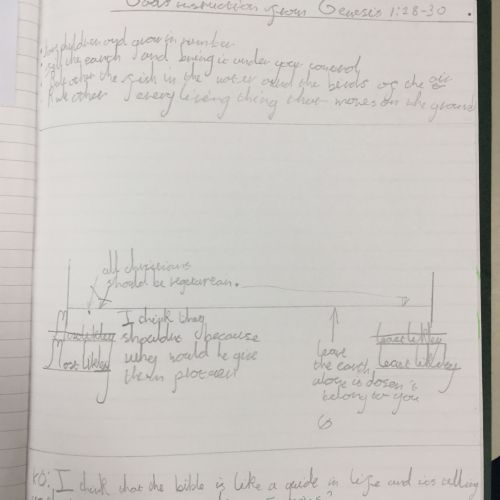 Gods instruction from Genesis 1:28-30.
• have children and grow in number
• fill the earth and bring it under your control
• Rule other the fish in the water and the birds of the air
• Rule other every living thing that moves on the ground
all christians
should be vegetarian.
I think they
should because
why would he give
them
Most likley
Most likley
leave
the earth
alone it dosen't
belong to you
Least likley
Least likley
I think that the bible is like a guide in life and its telling